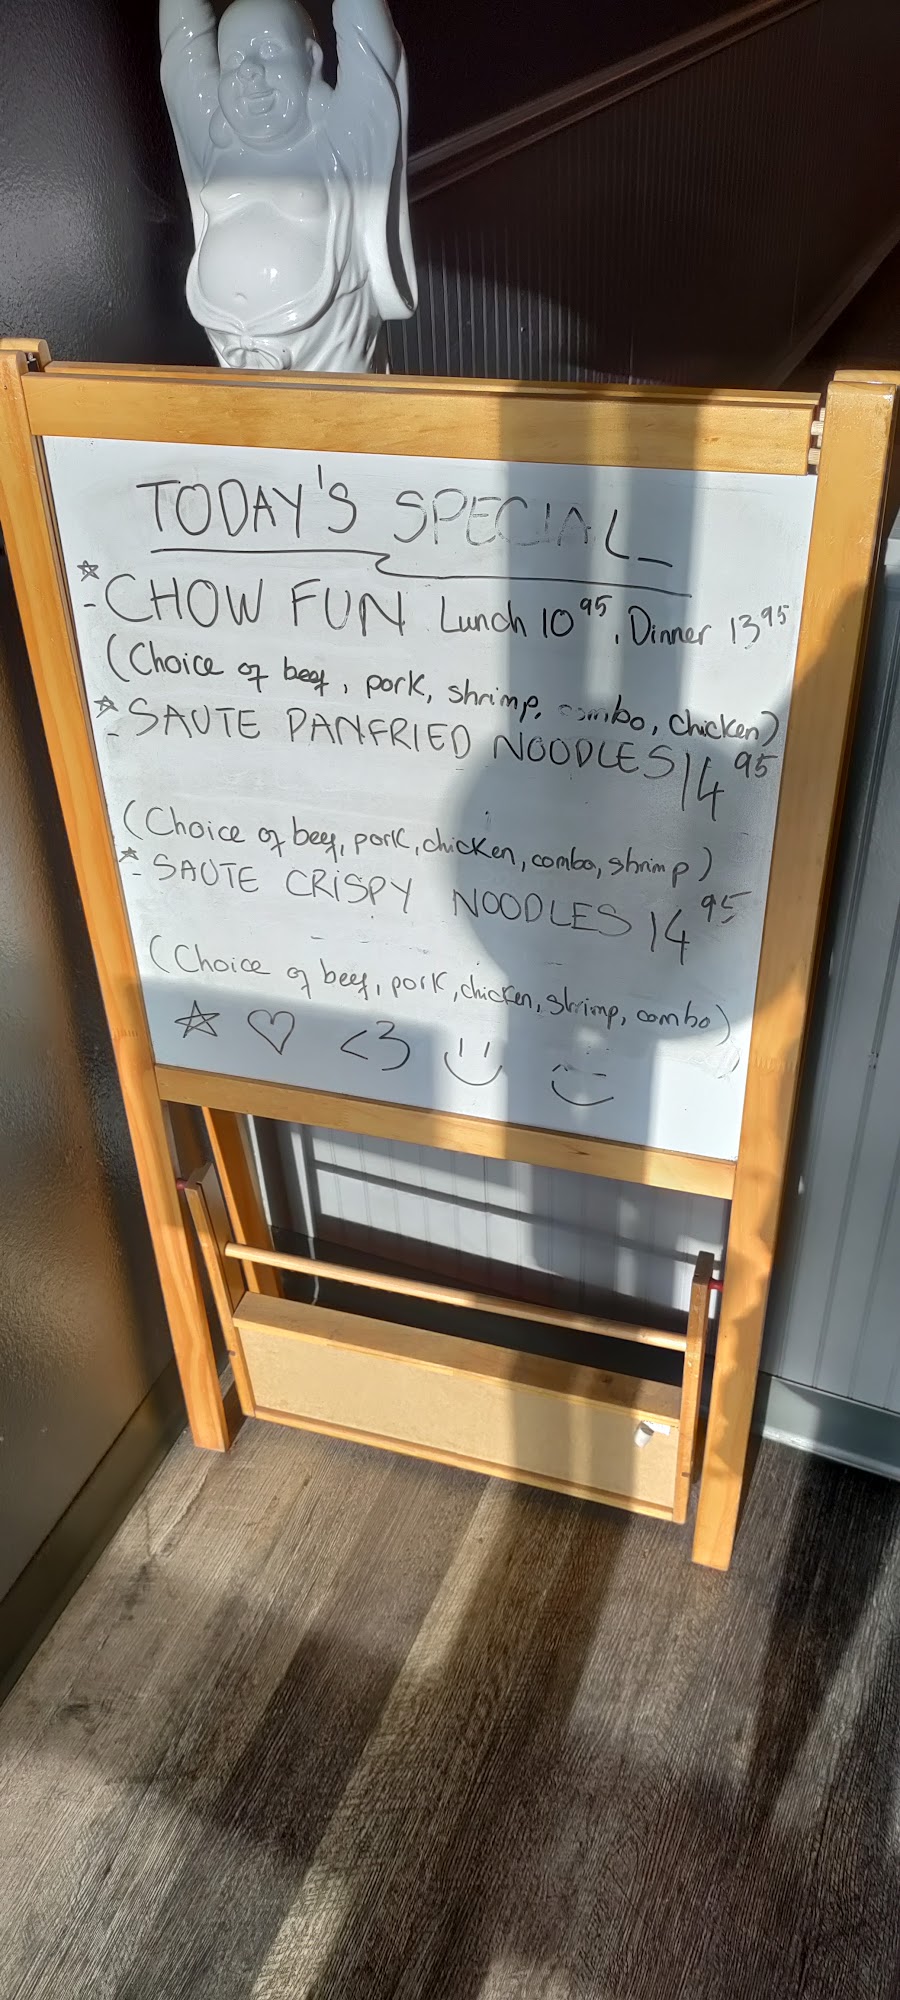 TODAY'S SPECIAL
☆ - CHOW FUN Lunch 10 95, Dinner 13 95
(Choice of beef, pork, shrimp, combo, chicken)
☆ - SAUTE PANFRIED NOODLES 14 95
(Choice of beef, pork, chicken, combo, shrimp)
☆ - SAUTE CRISPY NOODLES 14 95
(Choice of beef, pork, chicken, shrimp, combo)
☆ ♡ <3